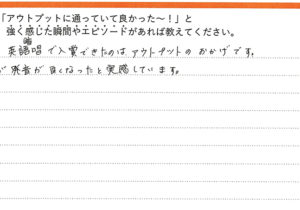 「アウトプットに通っていて良かった〜！」と
強く感じた瞬間やエピソードがあれば教えてください。
英語暗唱で入賞できたのはアウトプットのおかげです。
が発音が良くなったと実感しています。